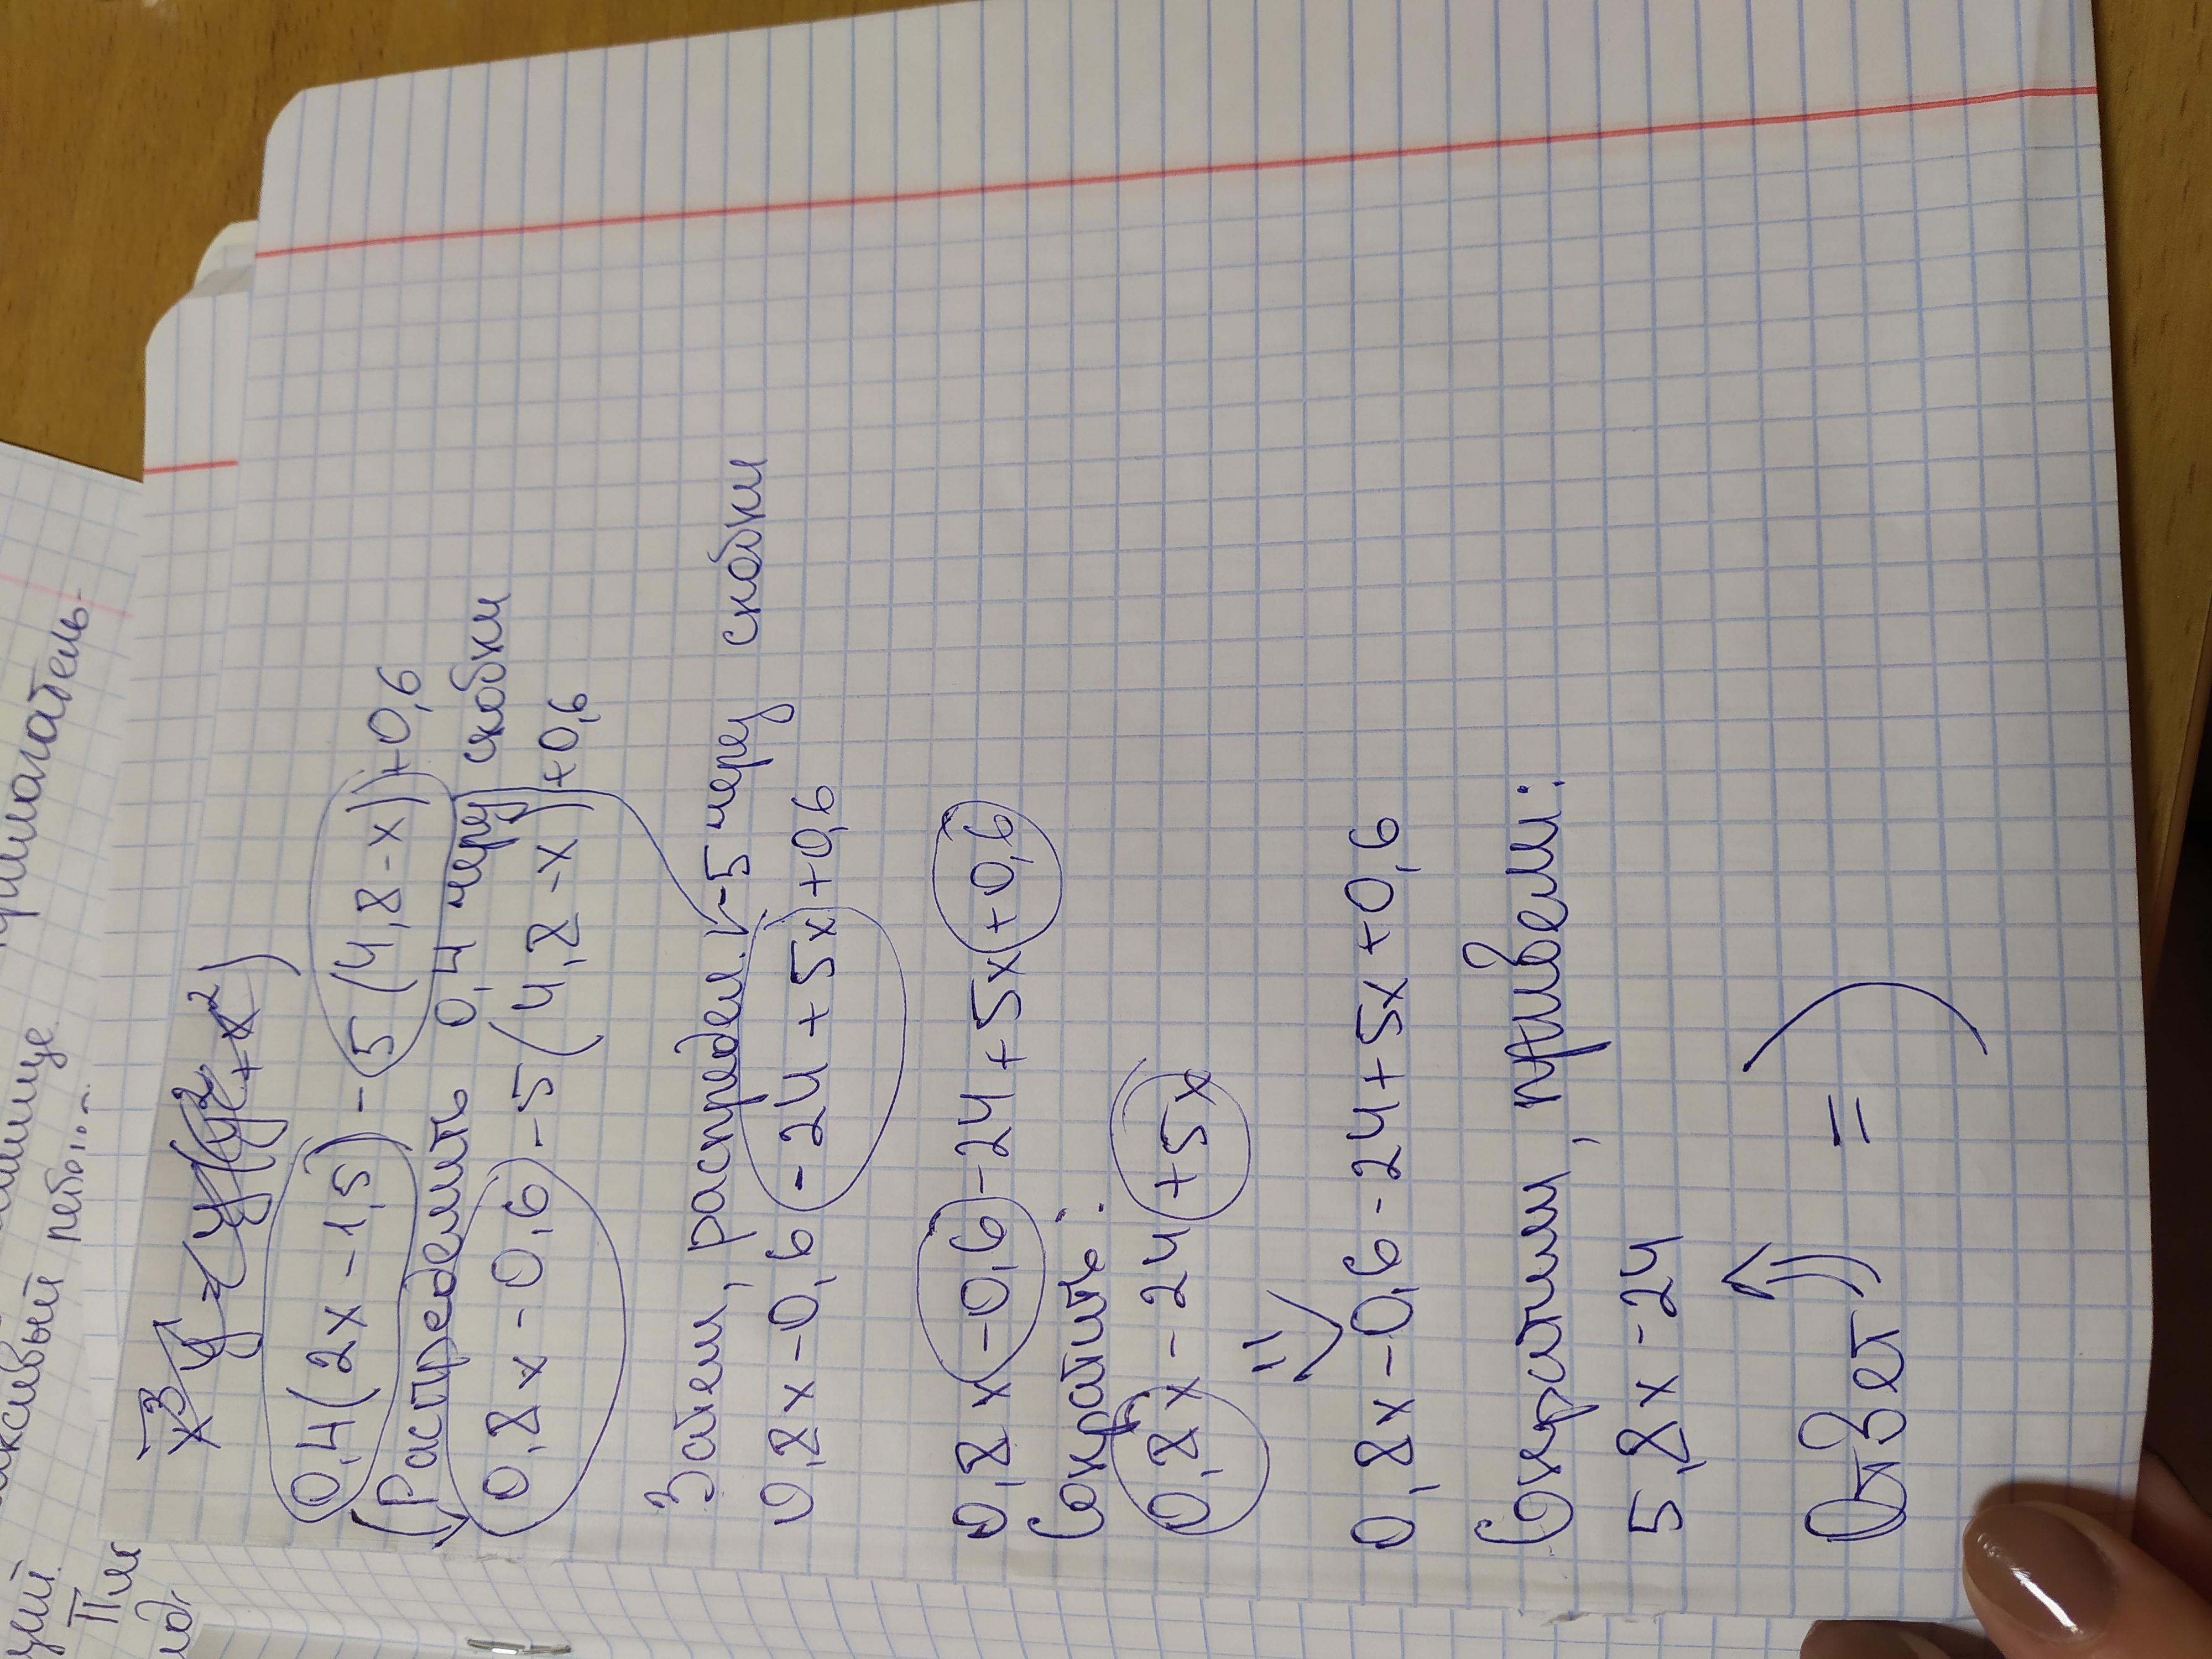 прилагательн-
красивый небо...
0,4(2x-1,5)-5(4,8-x)+0,6
Распределить 0,4 через скобки
0,8x-0,6-5(4,8-x)+0,6
Затем, распредел. -5 через скобки
0,8x-0,6-24+5x+0,6
0,8x-0,6-24+5x+0,6
Сократить:
0,8x-24+5x
0,8x-0,6-24+5x+0,6
Сократим, привели:
5,8x-24
Ответ =)